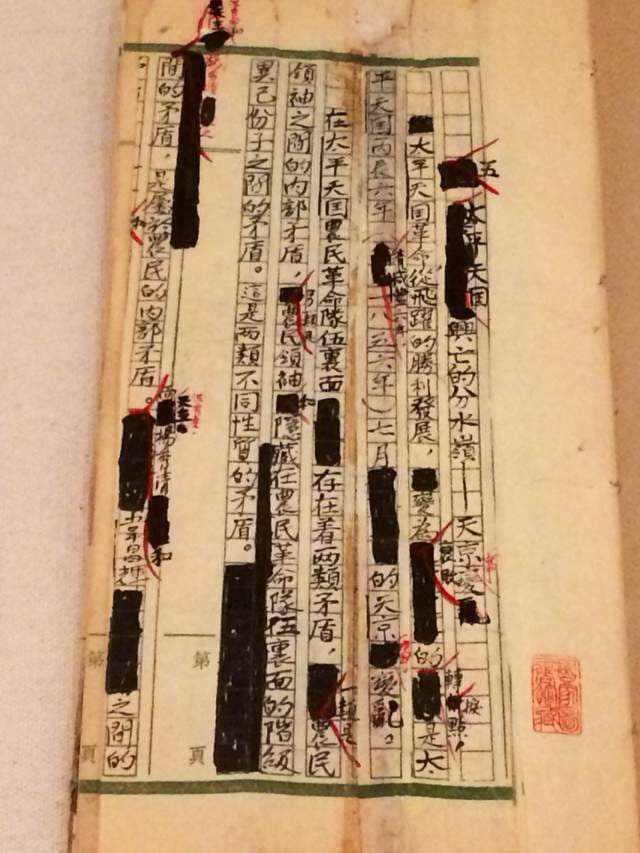 五
太平天国興亡的分水嶺——天京變亂
太平天国革命從飛躍的勝利發展，變為的轉捩點，是太
平天国丙辰六年（清咸豐六年一八五六年）七月的天京變亂。
在太平天国農民革命隊伍裏面存在着两類矛盾，一類是農民
領袖之間的內部矛盾，農民領袖和隱藏在農民革命隊伍裏面的階級
異己份子之間的矛盾。這是两類不同性質的矛盾。
楊秀清和
間的矛盾，是屬於農民的內部矛盾。韋昌輝之間的
第 頁
第 頁